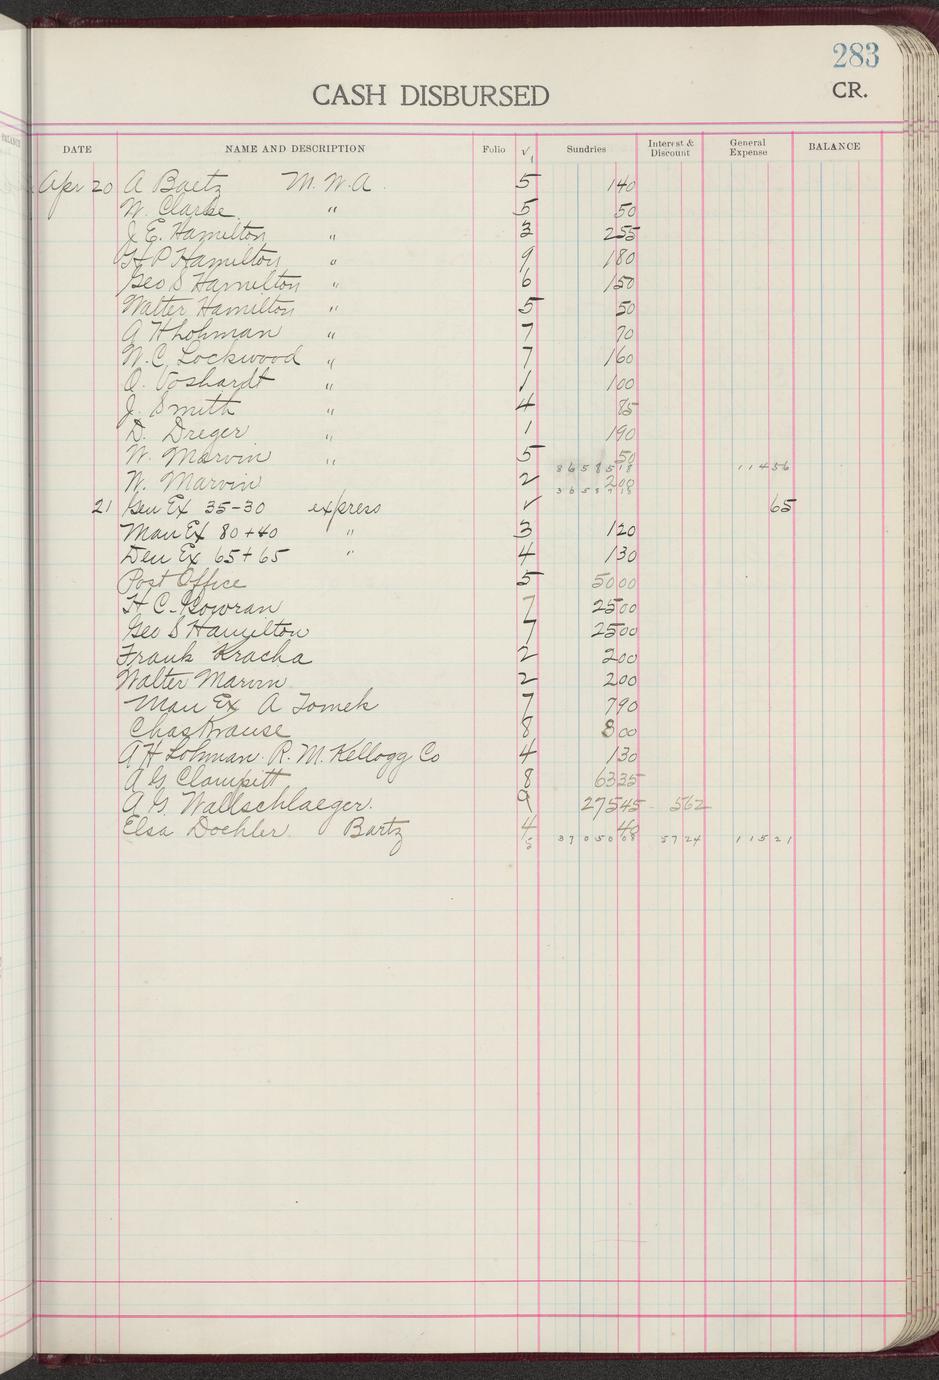 283
CASH DISBURSED
CR.
DATE NAME AND DESCRIPTION Folio √ Sundries Interest & Discount General Expense BALANCE
1
Apr 20 A Baetz M.W.A. 5 140
W. Clarke " 5 50
J. E. Hamilton " 3 255
H P Hamilton " 9 180
Geo S Hamilton " 6 150
Walter Hamilton " 5 50
A H Lohman " 7 70
W. C. Lockwood " 7 160
O. Voshardt " 1 100
J. Smith " 4 85
D. Dreger " 1 190
W. Marvin " 5 50
11456
W. Marvin 2 200
21 Gen Ex 35-30 express √ 65
Man Ex 80+40 " 3 120
Den Ex 65+65 " 4 130
Post Office 5 5000
H C Gowran 7 2500
Geo S Hamilton 7 2500
Frank Kracha 2 200
Walter Marvin 2 200
Man Ex A Tomek 7 790
Chas Krause 8 800
A H Lohman. R. M. Kellogg Co 4 130
A G Clampitt 8 6335
A. G. Wallschlaeger. 9 27545 562
Elsa Dochler Bartz 4 40
5 3705068 5724 11521